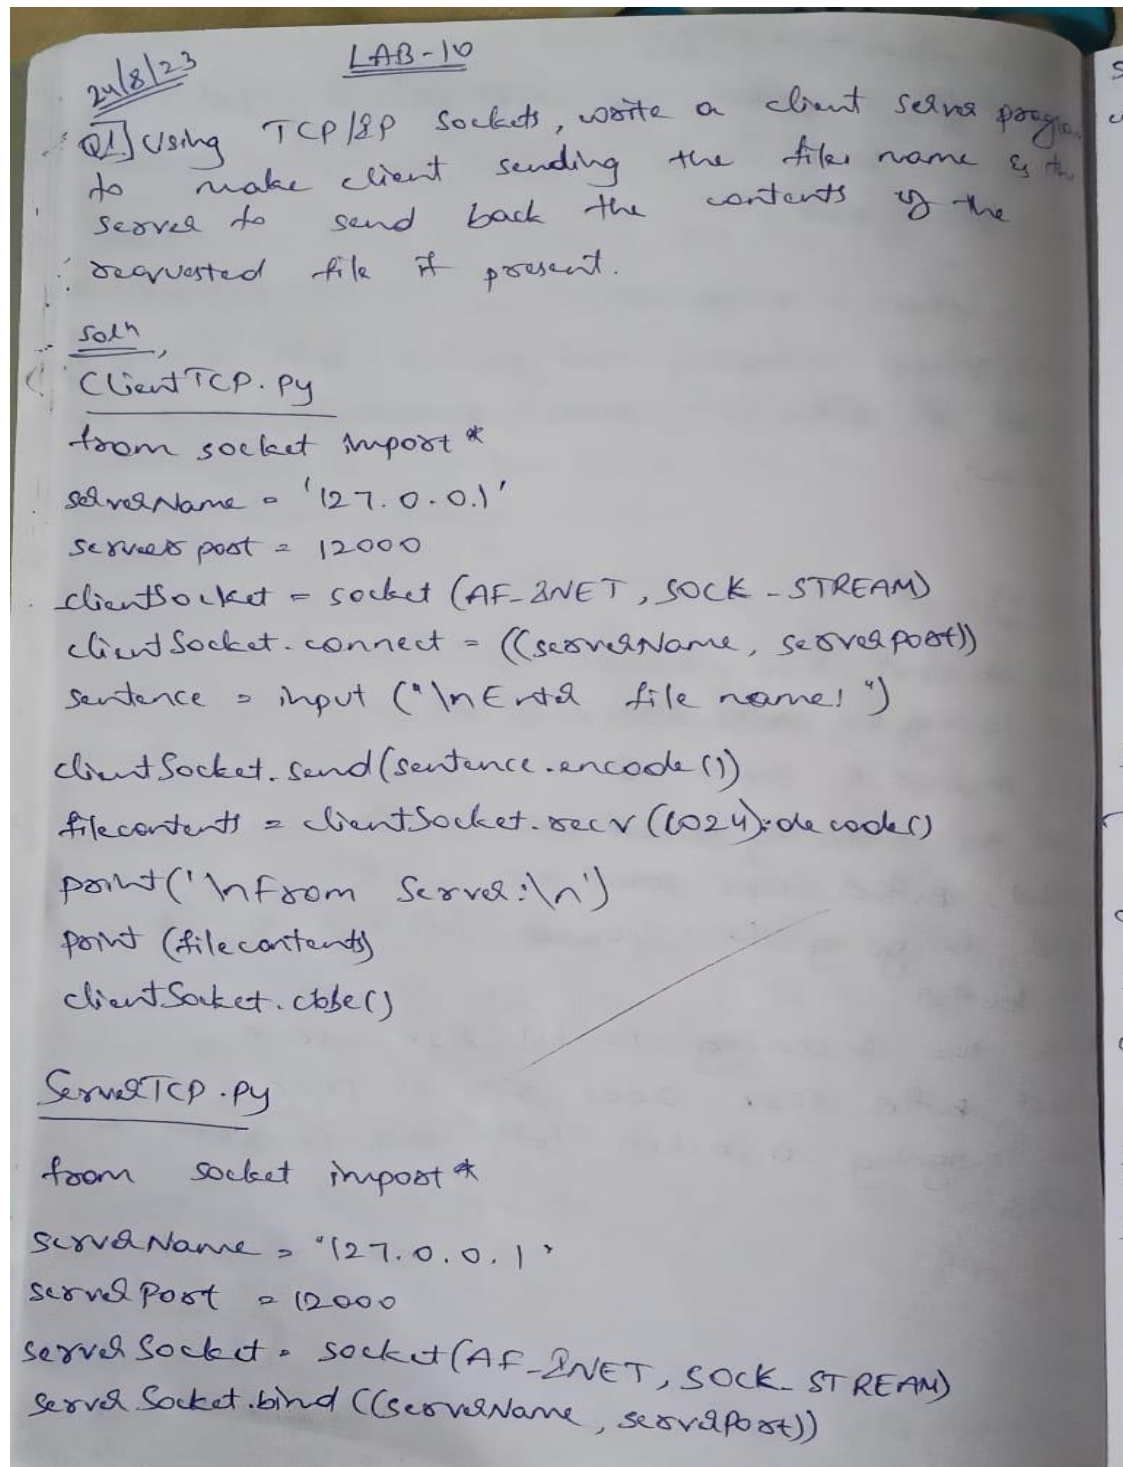 24/8/23
LAB-10
Q1] Using TCP/IP sockets, write a client server program
to make client sending the file name & the
server to send back the contents of the
requested file if present.
Soln,
ClientTCP.py
from socket import *
serverName = '127.0.0.1'
server port = 12000
clientSocket = socket (AF_INET, SOCK_STREAM)
clientSocket.connect = ((serverName, serverport))
sentence = input ("\nEnter file name: ")
clientSocket.send(sentence.encode())
filecontents = clientSocket.recv(1024).decode()
print('\nFrom Server:\n')
print (filecontents)
clientSocket.close()
ServerTCP.py
from socket import *
serverName = "127.0.0.1"
serverPort = 12000
serverSocket = socket(AF_INET, SOCK_STREAM)
serverSocket.bind((serverName, serverPort))